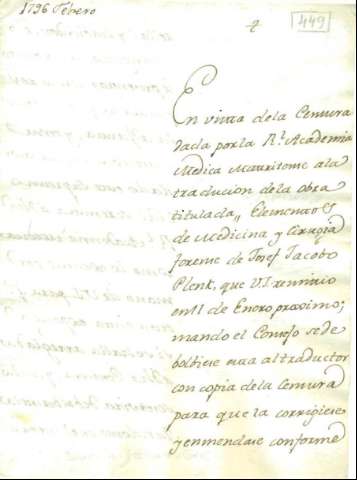 1796 Febrero
2
449
En vista dela Censura
dada por la Rl. Academia
Medica Matritense ala
traducion dela obra
titulada,, Elementos
de Medicina y Cirugia
forense de Josef Jacobo
Plenk, que V.I. remitio
en 11 de Enero proximo;
mando el Consejo se de
bolbiese esta al traductor
con copia dela Censura
para que la corrigiese
y enmendase conforme